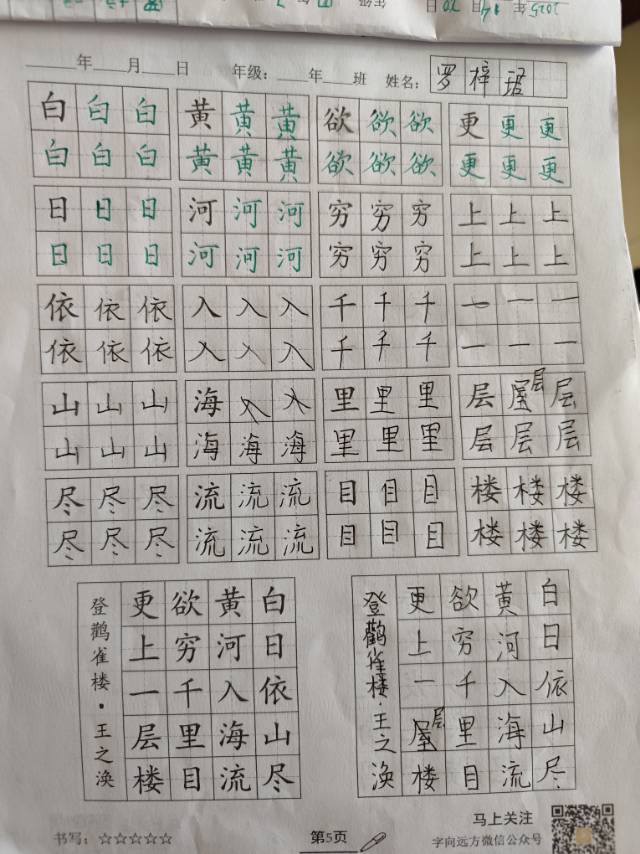 2025年 14月 20日
年 月 日 年级： 年 班 姓名：罗梓珺
白白白 黄黄黄 欲欲欲 更更更
白白白 黄黄黄 欲欲欲 更更更
日日日 河河河 穷穷穷 上上上
日日日 河河河 穷穷穷 上上上
依依依 入入入 千千千 一一一
依依依 入入入 千千千 一一一
山山山 海入入 里里里 层屋层层
山山山 海海海 里里里 层层层
尽尽尽 流流流 目目目 楼楼楼
尽尽尽 流流流 目目目 楼楼楼
白日依山尽
黄河入海流
欲穷千里目
更上一层楼
登鹳雀楼·王之涣
白日依山尽
黄河入海流
欲穷千里目
更上一屋层楼
登鹳雀楼·王之涣
书写：☆☆☆☆☆
第5页
马上关注
字向远方微信公众号